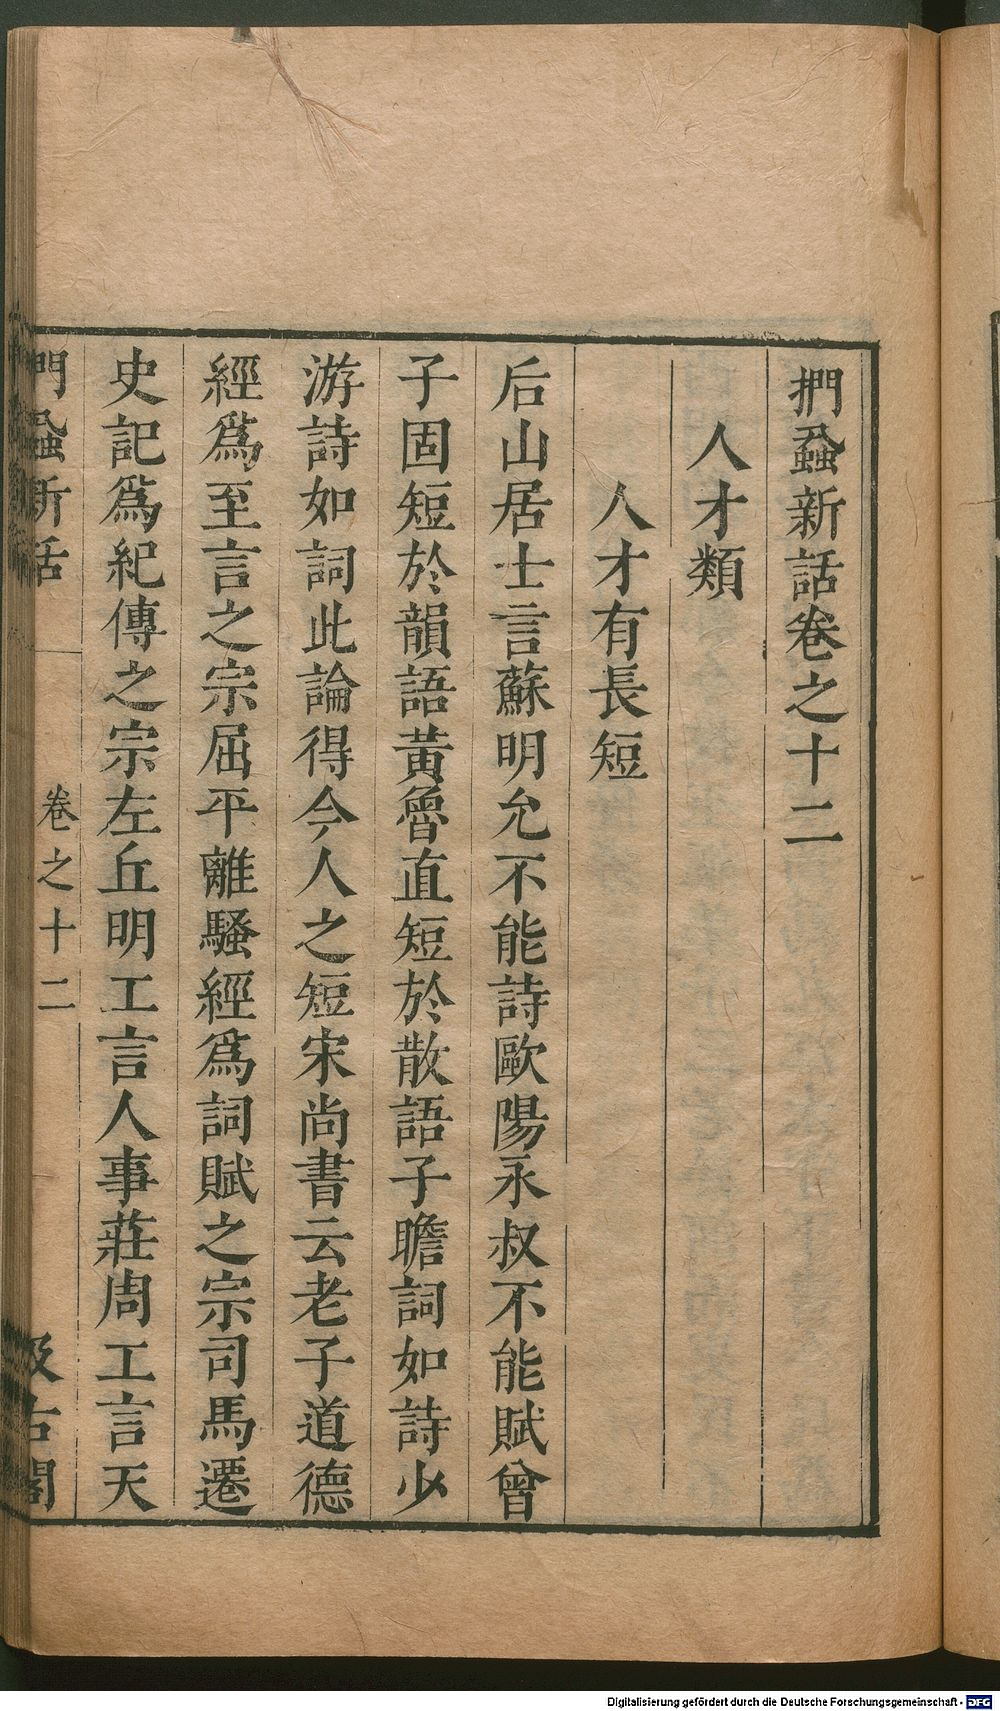 捫蝨新話卷之十二
人才類
人才有長短
后山居士言蘇明允不能詩歐陽永叔不能賦曾
子固短於韻語黃魯直短於散語子瞻詞如詩少
游詩如詞此論得今人之短宋尚書云老子道德
經爲至言之宗屈平離騷經爲詞賦之宗司馬遷
史記爲紀傳之宗左丘明工言人事莊周工言天
捫蝨新話
卷之十二
汲古閣
Digitalisierung gefördert durch die Deutsche Forschungsgemeinschaft - DFG